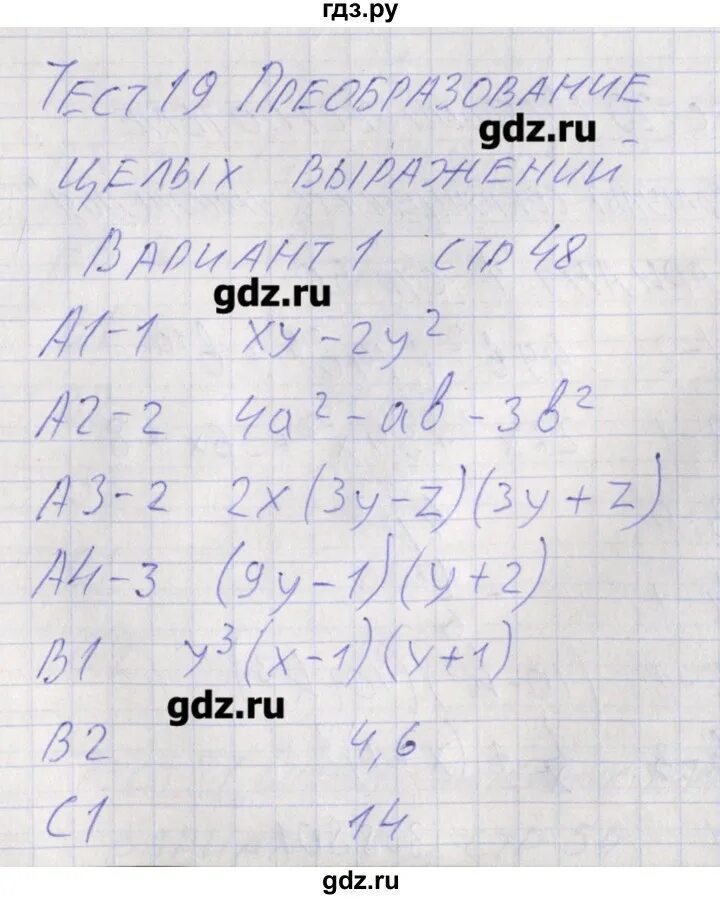 гдз.ру
ТЕСТ 19 ПРЕОБРАЗОВАНИЕ
gdz.ru
ЦЕЛЫХ ВЫРАЖЕНИЙ
ВАРИАНТ 1 СТР 48
gdz.ru
А1-1 xy - 2y²
А2-2 4a² - ab - 3b²
А3-2 2x(3y-z)(3y+z)
А4-3 (9y-1)(y+2)
В1 y³(x-1)(y+1)
gdz.ru
В2 4,6
С1 14
gdz.ru